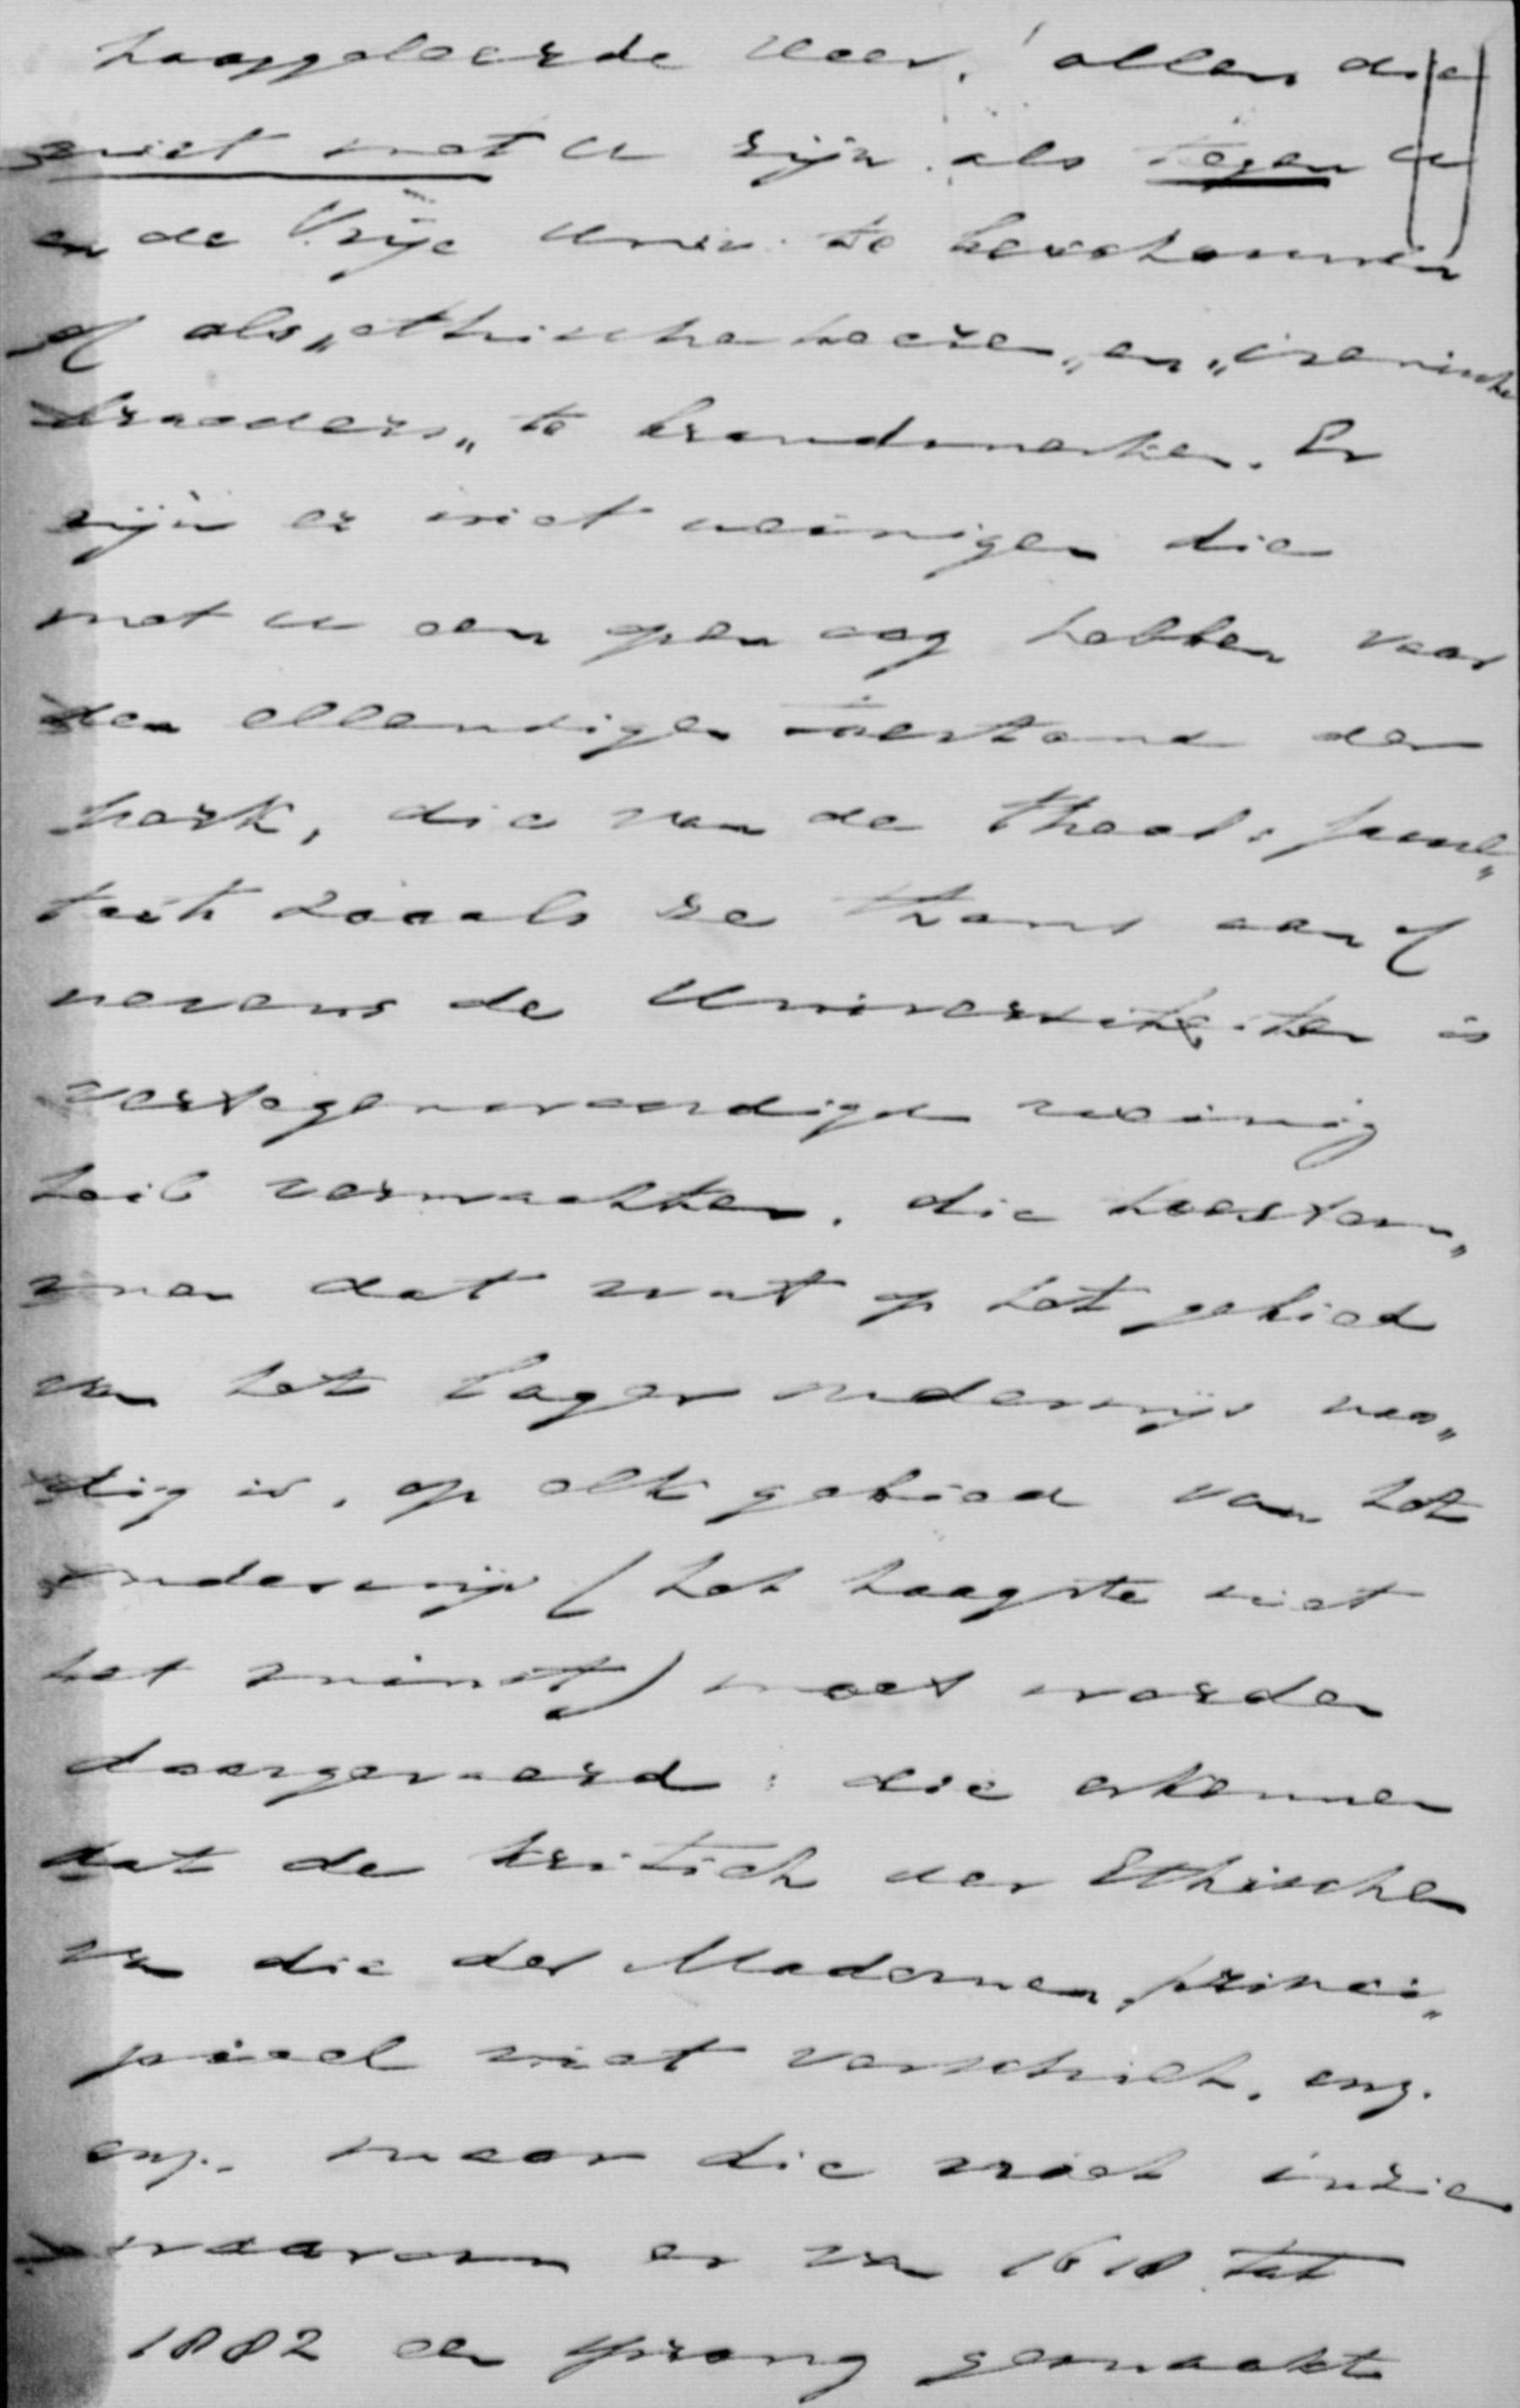 hooggeleerde Heer! allen die
niet met u zijn als tegen u
en de Vrije Univ: te beschouwen
of als „ethische heeren„ en „irenische
broeders„ te brandmerken. Er
zijn er niet weinigen die
met u een open oog hebben voor
den ellendigen toestand der
kerk, die van de theol: facul„
teit zooals ze thans aan of
nevens de Universiteiten is
vertegenwoordigd weinig
heil verwachten, die toestem„
men dat wat op het gebied
van het lager onderwijs noo„
dig is, op elk gebied van het
onderwijs (het hoogste niet
het minst) moet worden
doorgevoerd: die erkennen
dat de kritiek der Ethischen
van die der Modernen princi„
piëel niet verschilt, enz.
enz. maar die niet inzien
waarom er van 1618 tot
1882 een sprong gemaakt